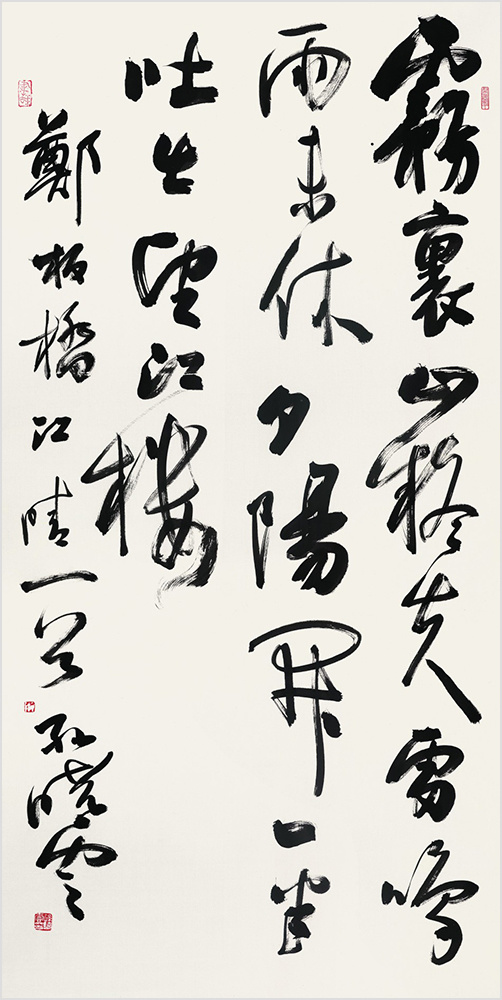 霧裹山疑失雷鳴
雨未休夕陽開一半
吐出望江樓
鄭板橋江晴一首孔曉雲